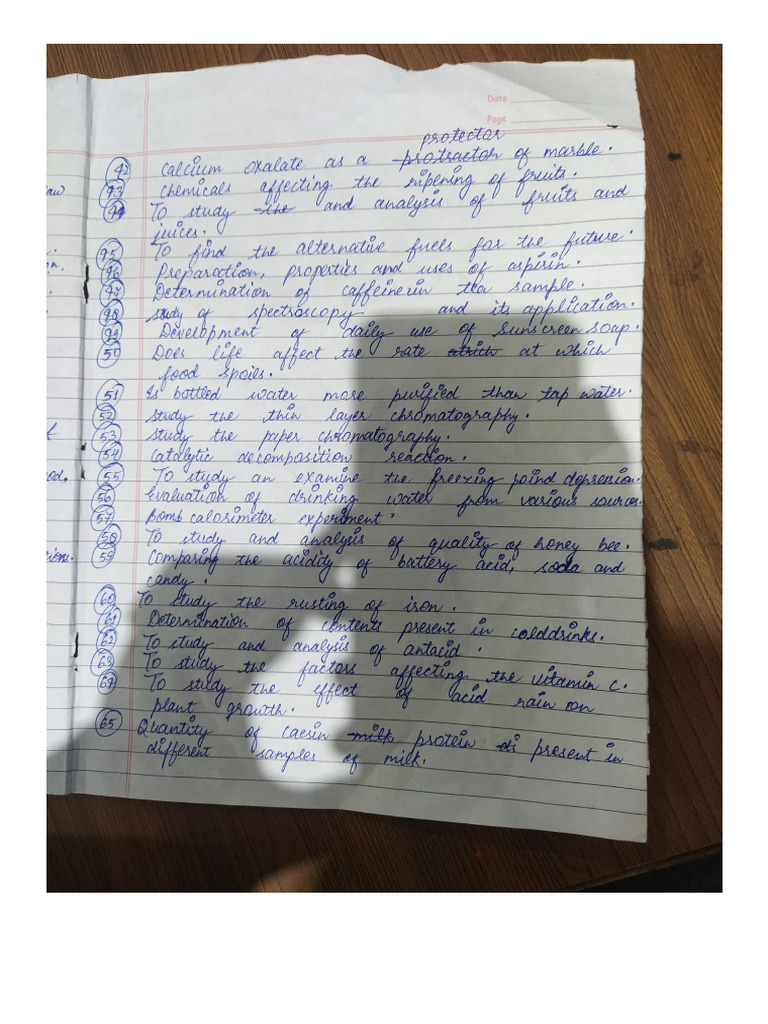 Date
Page
protector
42 Calcium oxalate as a protractor of marble.
43 Chemicals affecting the ripening of fruits.
44 To study the and analysis of fruits and
juices.
45 To find the alternative fuels for the future.
46 Preparation, properties and uses of aspirin.
47 Determination of caffeine in tea sample.
48 Study of spectroscopy and its application.
49 Development of daily use of sunscreen soap.
50 Does life affect the rate at which
food spoils.
51 Is bottled water more purified than tap water.
52 Study the thin layer chromatography.
53 Study the paper chromatography.
54 Catalytic decomposition reaction.
55 To study an examine the freezing poind depression.
56 Evaluation of drinking water from various sources.
57 Bomb calorimeter experiment.
58 To study and analysis of quality of honey bee.
59 Comparing the acidity of battery acid, soda and
candy.
60 To study the rusting of iron.
61 Determination of contents present in colddrinks.
62 To study and analysis of antacid.
63 To study the factors affecting the vitamin C.
64 To study the effect of acid rain on
plant growth.
65 Quantity of caesin milk protein di present in
different samples of milk.